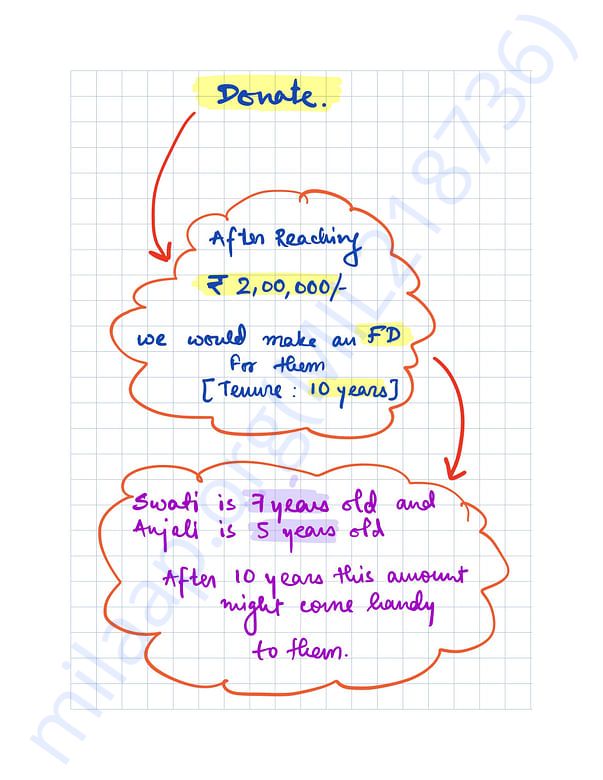 Donate.
After Reaching
₹ 2,00,000/-
we would make an FD
for them
[Tenure : 10 years]
Swati is 7 years old and
Anjali is 5 years old
After 10 years this amount
might come handy
to them.
milaap.org(MIL218736)